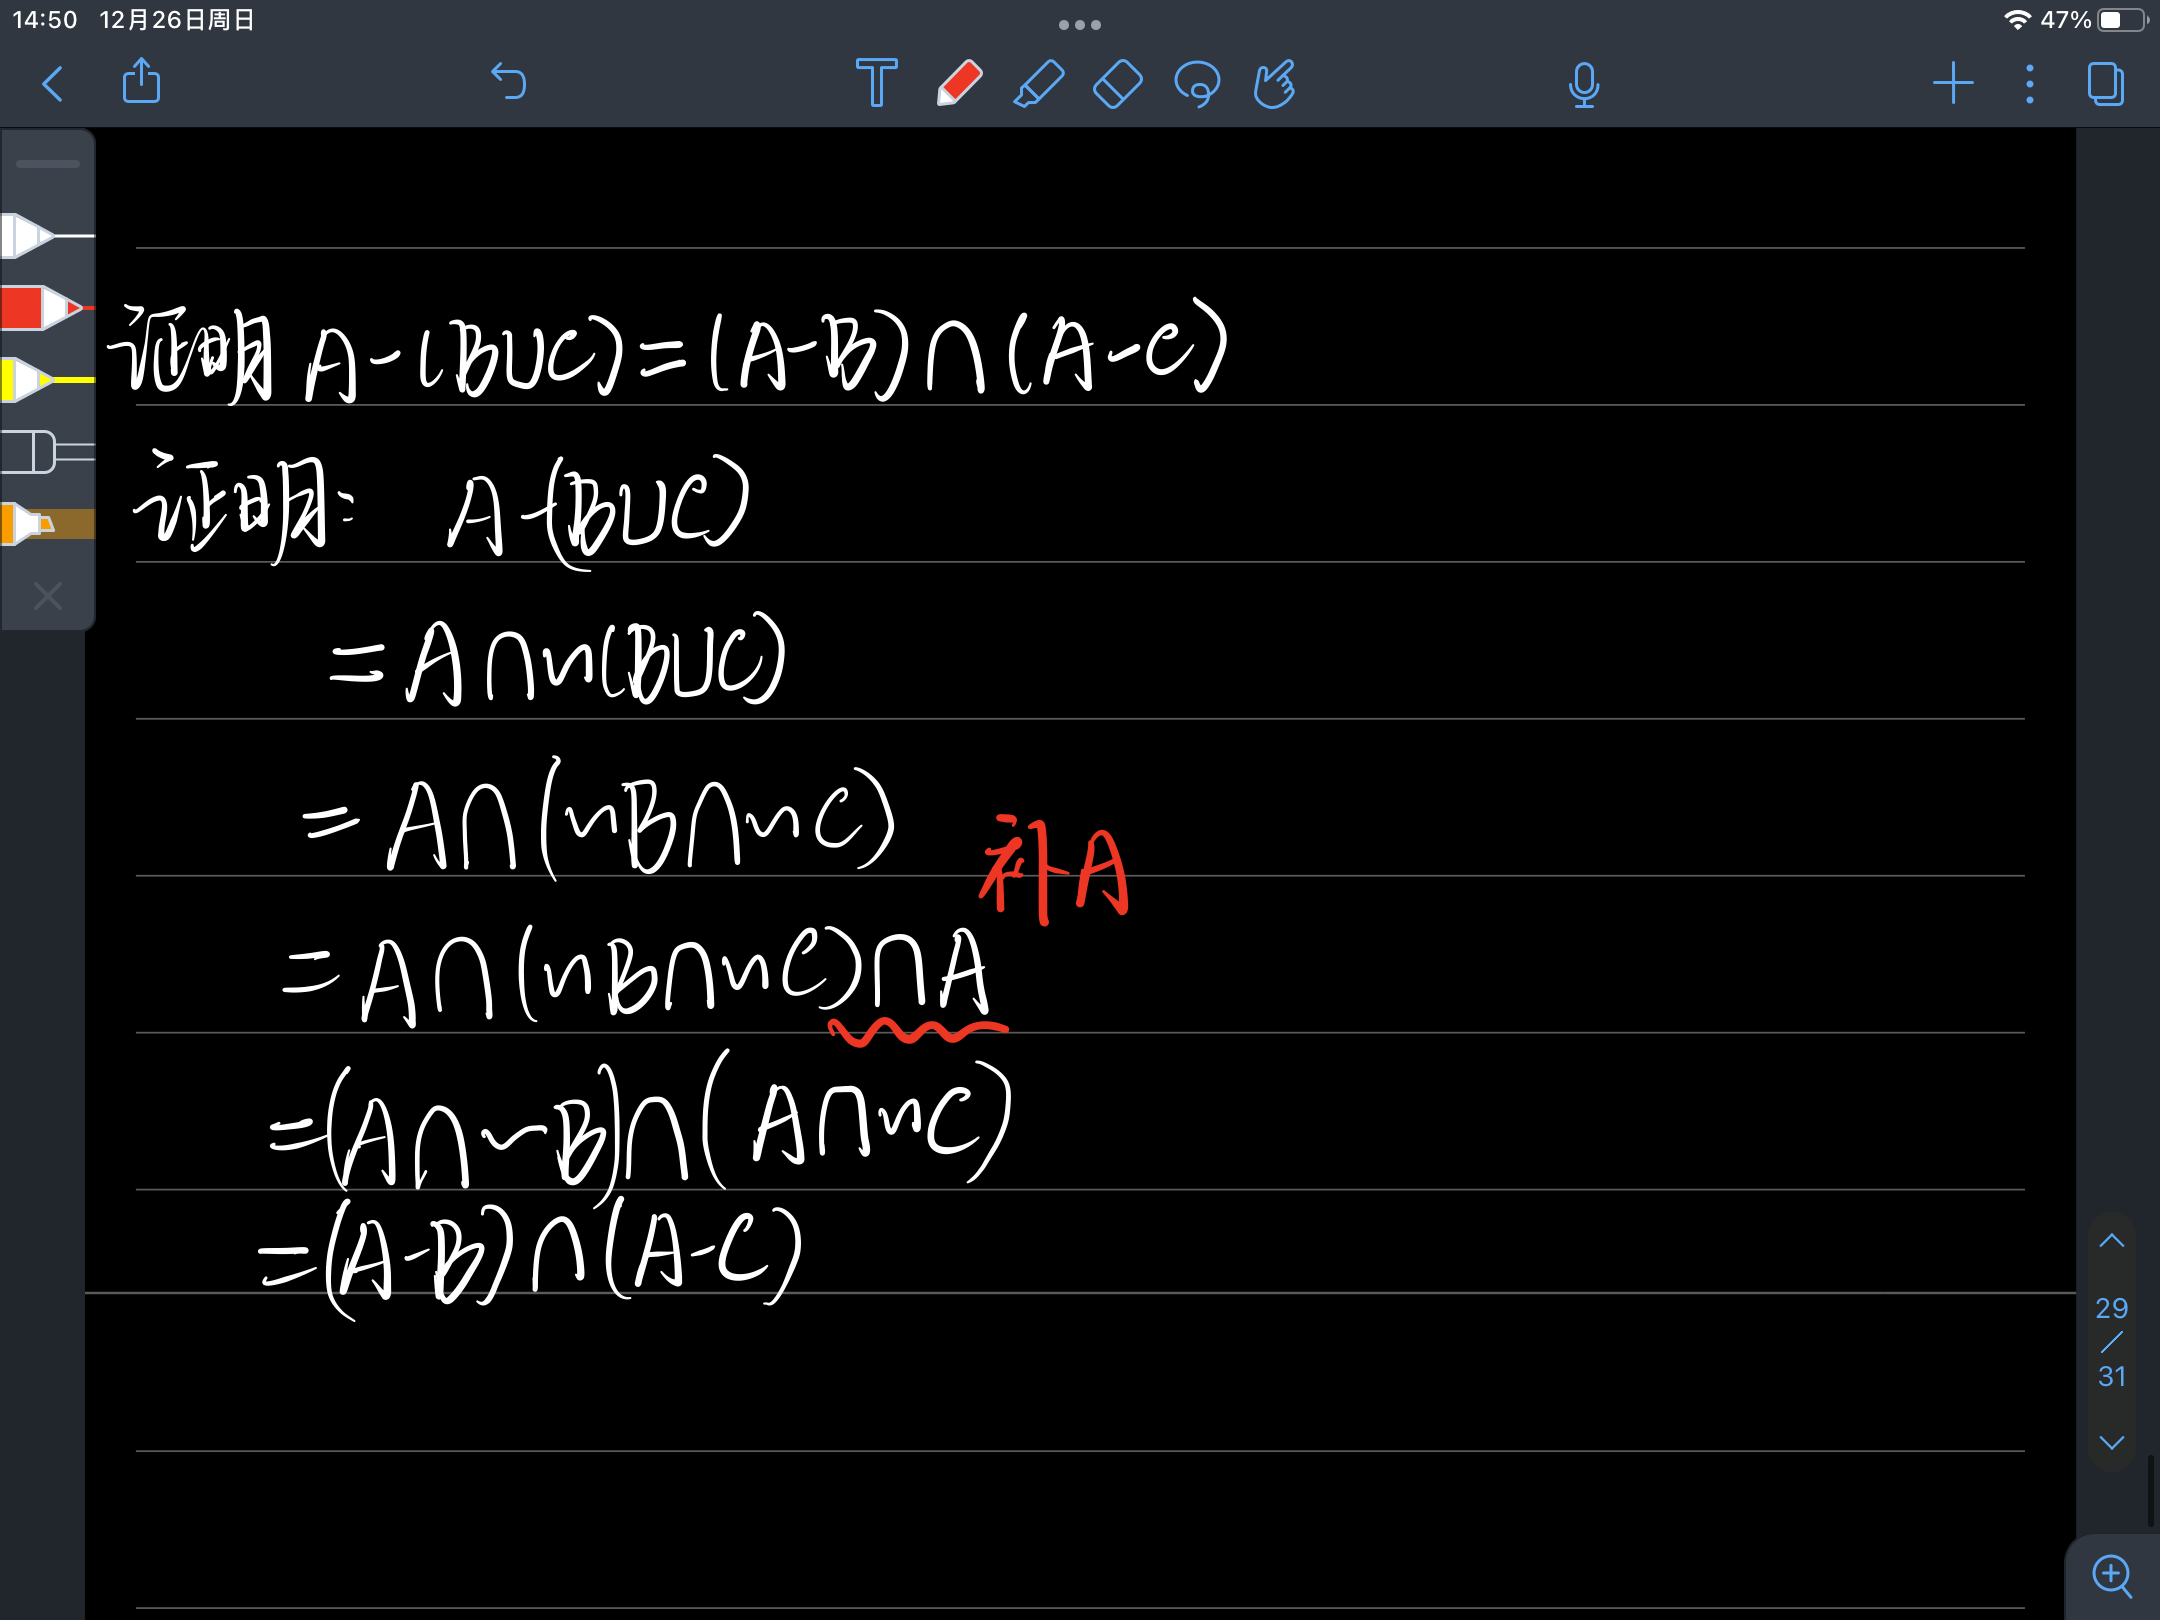 14:50 12月26日周日
47%
证明 A-(B∪C)=(A-B)∩(A-C)
证明: A-(B∪C)
=A∩~(B∪C)
=A∩(~B∩~C)
补A
=A∩(~B∩~C)∩A
=(A∩~B)∩(A∩~C)
=(A-B)∩(A-C)
29
/
31